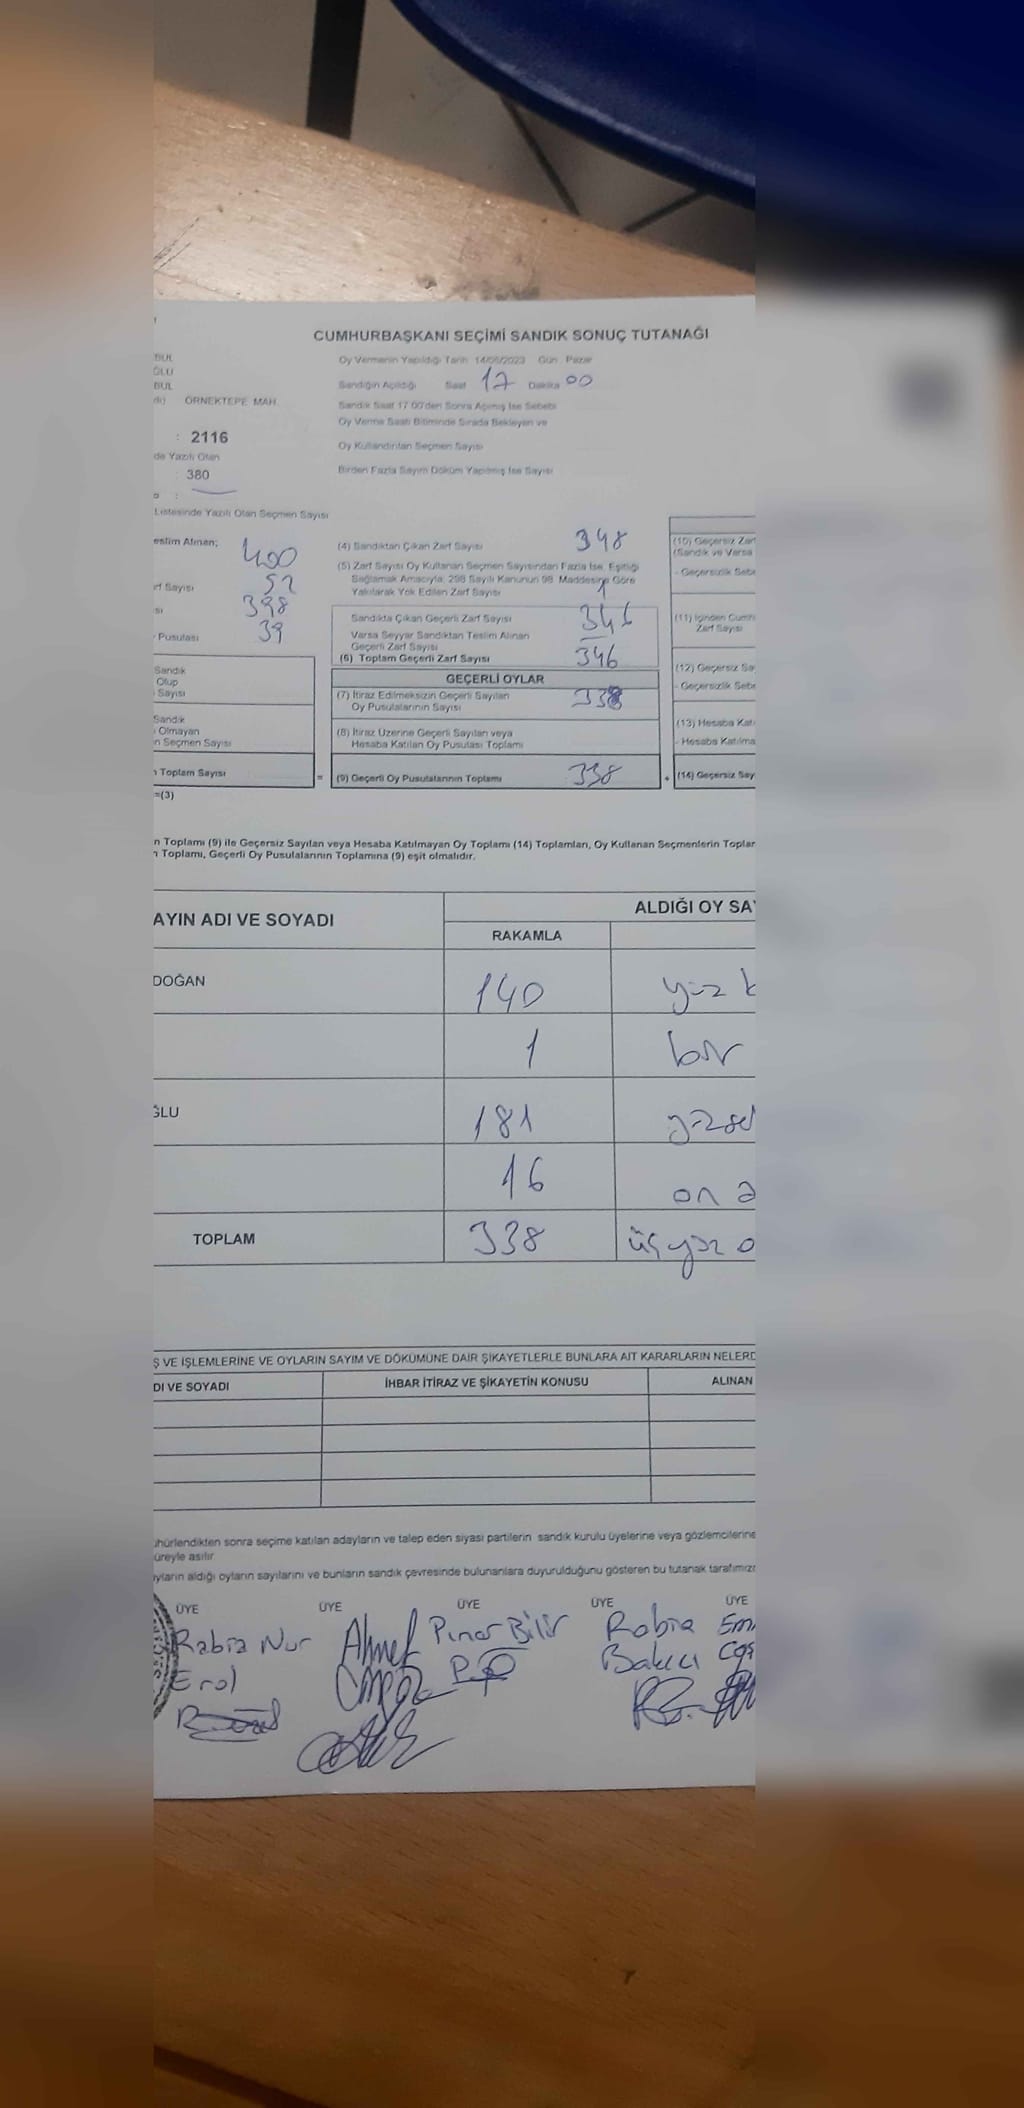 CUMHURBAŞKANI SEÇİMİ SANDIK SONUÇ TUTANAĞI
BUL
ĞLU
BUL
ÖRNEKTEPE MAH.
: 2116
de Yazılı Olan
: 380
Listesinde Yazılı Olan Seçmen Sayısı
Oy Vermenin Yapıldığı Tarih 14/05/2023 Gün Pazar
Sandığın Açıldığı Saat 17 Dakika 00
Sandık Saat 17:00'den Sonra Açılmış İse Sebebi
Oy Verme Saati Bitiminde Sırada Bekleyen ve
Oy Kullandırılan Seçmen Sayısı
Birden Fazla Sayım Döküm Yapılmış İse Sayısı
eslim Alınan; 400
rf Sayısı 52
sı 348
Pusulası 39
Sandık
Olup
Sayısı
Sandık
Olmayan
n Seçmen Sayısı
n Toplam Sayısı =
=(3)
(4) Sandıktan Çıkan Zarf Sayısı 348
(5) Zarf Sayısı Oy Kullanan Seçmen Sayısından Fazla İse, Eşitliği
Sağlamak Amacıyla, 298 Sayılı Kanunun 98. Maddesine Göre
Yakılarak Yok Edilen Zarf Sayısı
Sandıkta Çıkan Geçerli Zarf Sayısı 346
Varsa Seyyar Sandıktan Teslim Alınan
Geçerli Zarf Sayısı
(6) Toplam Geçerli Zarf Sayısı 346
GEÇERLİ OYLAR
(7) İtiraz Edilmeksizin Geçerli Sayılan
Oy Pusulalarının Sayısı 338
(8) İtiraz Üzerine Geçerli Sayılan veya
Hesaba Katılan Oy Pusulası Toplamı
(9) Geçerli Oy Pusulalarının Toplamı 338 +
(10) Geçersiz Zarf
(Sandık ve Varsa
- Geçersizlik Sebe
(11) İçinden Cumh
Zarf Sayısı
(12) Geçersiz Sa
- Geçersizlik Sebe
(13) Hesaba Katı
- Hesaba Katılma
(14) Geçersiz Say
n Toplamı (9) ile Geçersiz Sayılan veya Hesaba Katılmayan Oy Toplamı (14) Toplamları, Oy Kullanan Seçmenlerin Toplar
n Toplamı, Geçerli Oy Pusulalarının Toplamına (9) eşit olmalıdır.
AYIN ADI VE SOYADI
ALDIĞI OY SAY
RAKAMLA
DOĞAN 140 yüz k
1 bir
ĞLU 181 yüzsek
16 on a
TOPLAM 338 üçyüz o
Ş VE İŞLEMLERİNE VE OYLARIN SAYIM VE DÖKÜMÜNE DAİR ŞİKAYETLERLE BUNLARA AİT KARARLARIN NELERD
DI VE SOYADI İHBAR İTİRAZ VE ŞİKAYETİN KONUSU ALINAN
ühürlendikten sonra seçime katılan adayların ve talep eden siyasi partilerin sandık kurulu üyelerine veya gözlemcilerine
üreyle asılır
yların aldığı oyların sayılarını ve bunların sandık çevresinde bulunanlara duyurulduğunu gösteren bu tutanak tarafımızr
ÜYE ÜYE ÜYE ÜYE ÜYE
Rabia Nur Ahmet Pınar Bilir Rabia Em
Erol Bakıcı